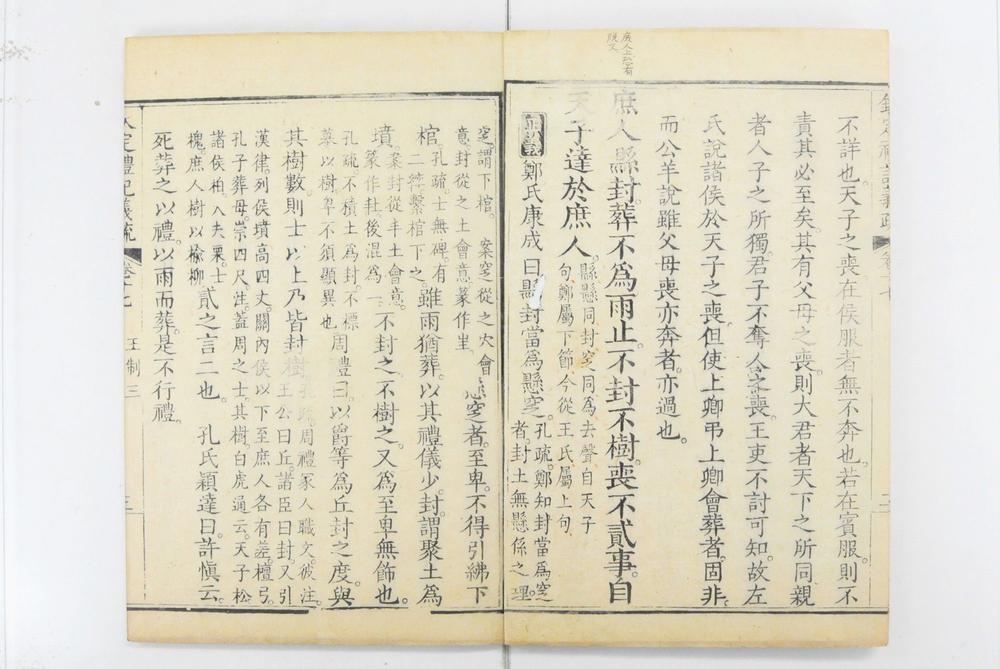 庶人上恐有
脫文
不詳也。天子之喪在侯服者無不奔也。若在賓服則不
責其必至矣。其有父母之喪。則大君者天下之所同。親
者人子之所獨。君子不奪人之喪。王吏不討可知。故左
氏說諸侯於天子之喪。但使上卿弔上卿會葬者。固非。
而公羊說雖父母喪亦奔者。亦過也。
庶人縣封。葬不為雨止。不封不樹。喪不貳事。自
天子達於庶人。
縣懸同。封窆同。為去聲。自天子
句鄭屬下節。今從王氏屬上句。
正義 鄭氏康成曰。縣封當為縣窆。
孔疏。鄭知封當為窆
者。封土無懸係之理。
欽定禮記義疏 卷十七 王制三 三
窆謂下棺。 案窆從之穴會
意。封從之土會意。篆作
縣窆者。至卑。不得引紼下
棺。
孔疏士無碑。有
二繂繫棺下之。
雖雨猶葬。以其禮儀少。封謂聚土為
墳。
案封從丰土會意。
篆作 後混為一。
不封之。不樹之。又為至卑無飾也。
孔疏。不積土為封。不標
墓以樹。卑不須顯異也。
周禮曰。以爵等為丘封之度。與
其樹數。則士以上乃皆封樹。
孔疏。周禮冢人職文。彼注。
王公曰丘。諸臣曰封。又引
漢律。列侯墳高四丈。關內侯以下至庶人各有差。檀弓
孔子葬母。崇四尺。注。蓋周之士。其樹。白虎通云。天子松
諸侯柏。大夫栗。士
槐。庶人樹以榆柳。
貳之言二也。 孔氏穎達曰。許慎云。
死葬之以禮。以雨而葬。是不行禮。